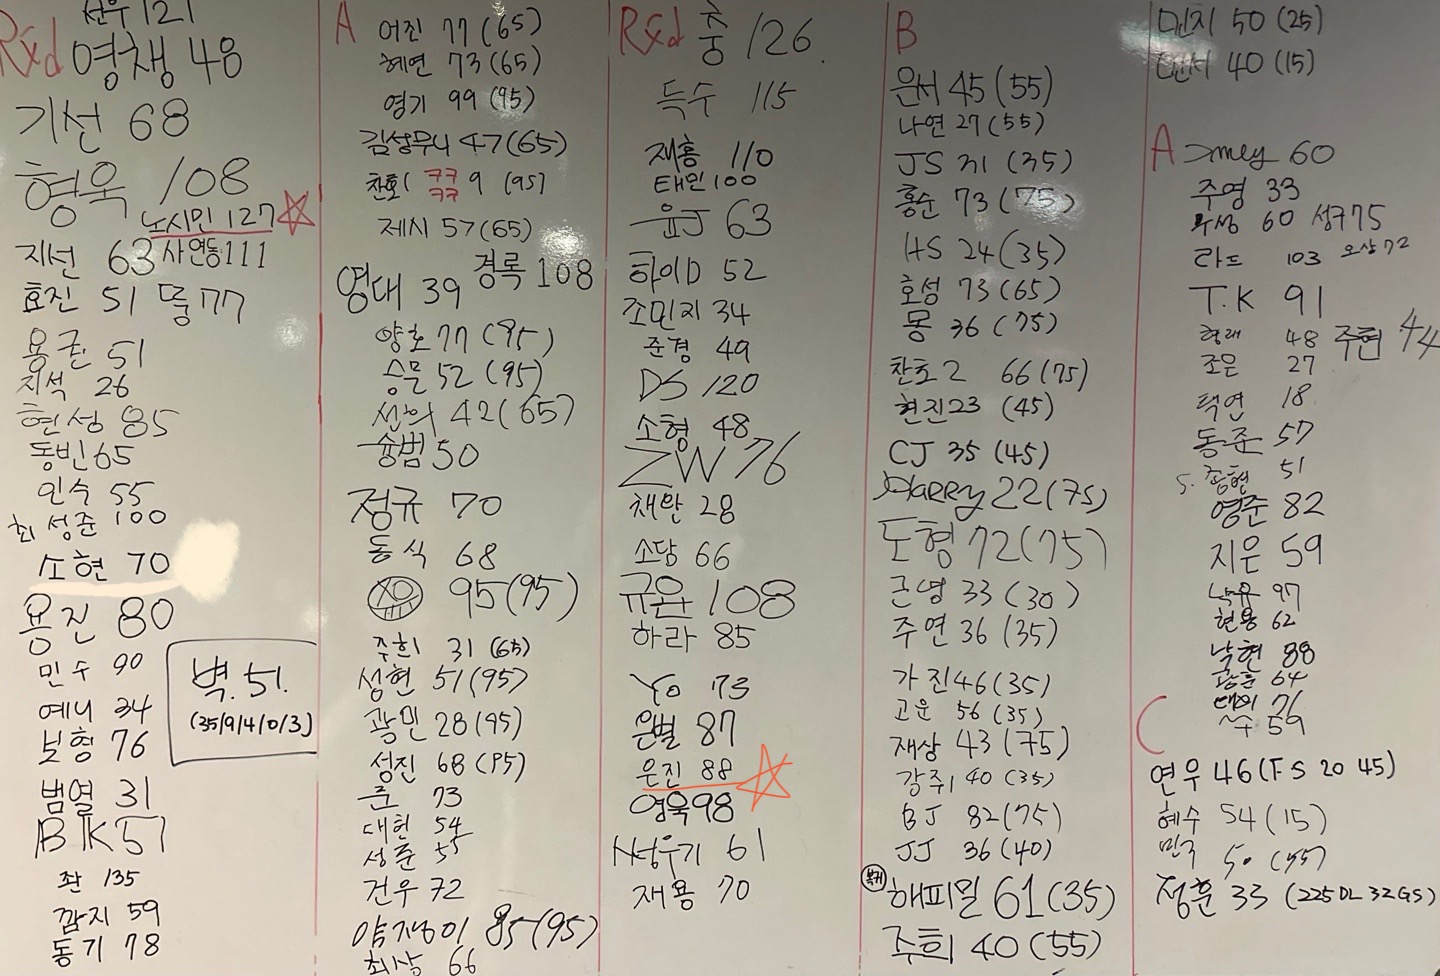 선우 121
Rxd 영채 48
기선 68
형욱 108
노시민 127
지선 63 사연동 111
효진 51 뚱 77
용균 51
지석 26
현성 85
동빈 65
인수 55
최성준 100
소현 70
용진 80
민수 90
예니 34
보형 76
범열 31
BK 51
좌 135
깜지 59
동기 78
벽. 51.
(35/9/4/0/3)
A
어진 77 (65)
혜연 73 (65)
영기 99 (95)
김성무니 47 (65)
찬희 쿠쿠쿠쿠 9 (95)
제시 57 (65)
영대 39 경록 108
양호 77 (95)
승문 52 (95)
선의 42 (65)
슝범 50
정규 70
동식 68
95 (95)
주희 31 (65)
성현 51 (95)
광민 28 (95)
성진 68 (95)
준 73
대헌 54
성준 55
건우 72
약쟁이 85 (95)
최상 66
Rxd 충 126.
득수 115
재홍 110
태민 100
윤J 63
하이D 52
조민지 34
준경 49
DS 120
소형 48
ZW 76
채만 28
소담 66
규은 108
하라 85
Yo 73
은별 87
은진 88
영욱 98
성우기 61
재용 70
B
은서 45 (55)
나연 27 (55)
JS 31 (35)
홍순 73 (75)
HS 24 (35)
호성 73 (65)
몽 36 (75)
찬호2 66 (75)
현진 23 (45)
CJ 35 (45)
HARRY 22 (75)
도형 72 (75)
근영 33 (30)
주연 36 (35)
가진 46 (35)
고운 56 (35)
재상 43 (75)
강주 40 (35)
BJ 82 (75)
JJ 36 (40)
복귀 해피밀 61 (35)
주희 40 (55)
민지 50 (25)
민서 40 (15)
A
60
주영 33
우성 60 성구 75
라드 103 오상 72
T.K 91
형래 48 주현 44
조은 27
택연 18
동준 57
S. 종현 51
영준 82
지은 59
97
현용 62
낙현 88
광훈 64
71
59
C
연우 46 (F.S 20 45)
혜수 54 (15)
민국 50 (55)
정훈 33 (225DL 32GS)